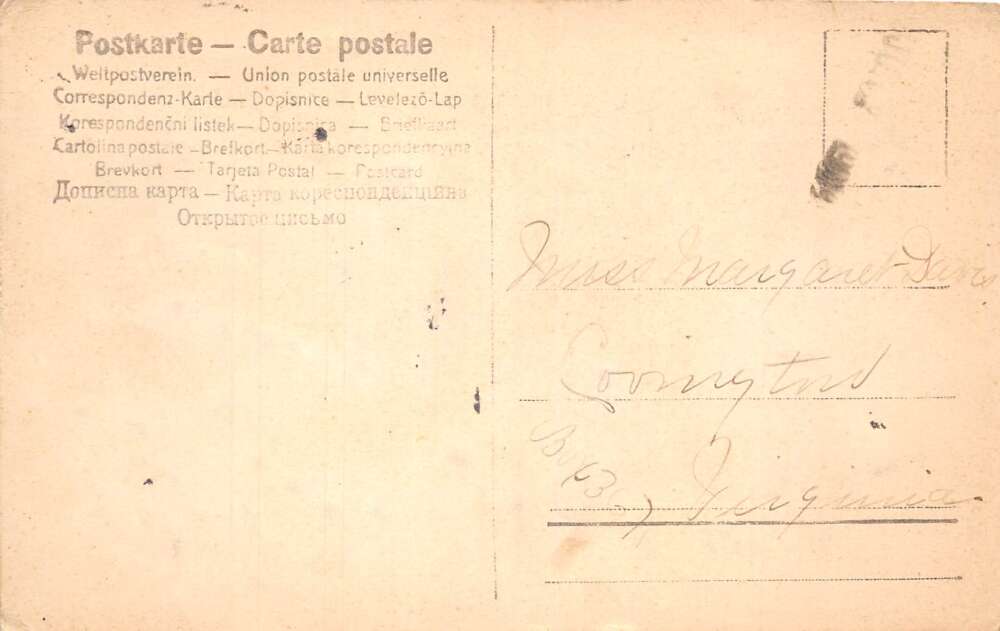 Postkarte — Carte postale
Weltpostverein. — Union postale universelle
Correspondenz-Karte — Dopisnice — Levelező-Lap
Korespondenční listek — Dopisnica — Briefkaart
Cartolina postale — Brefkort — Karta korespondencyjna
Brevkort — Tarjeta Postal — Postcard
Дописна карта — Карта кореспонденцiйна
Открытое письмо
Miss Margaret Davis
Covington
Box 3
Virginia